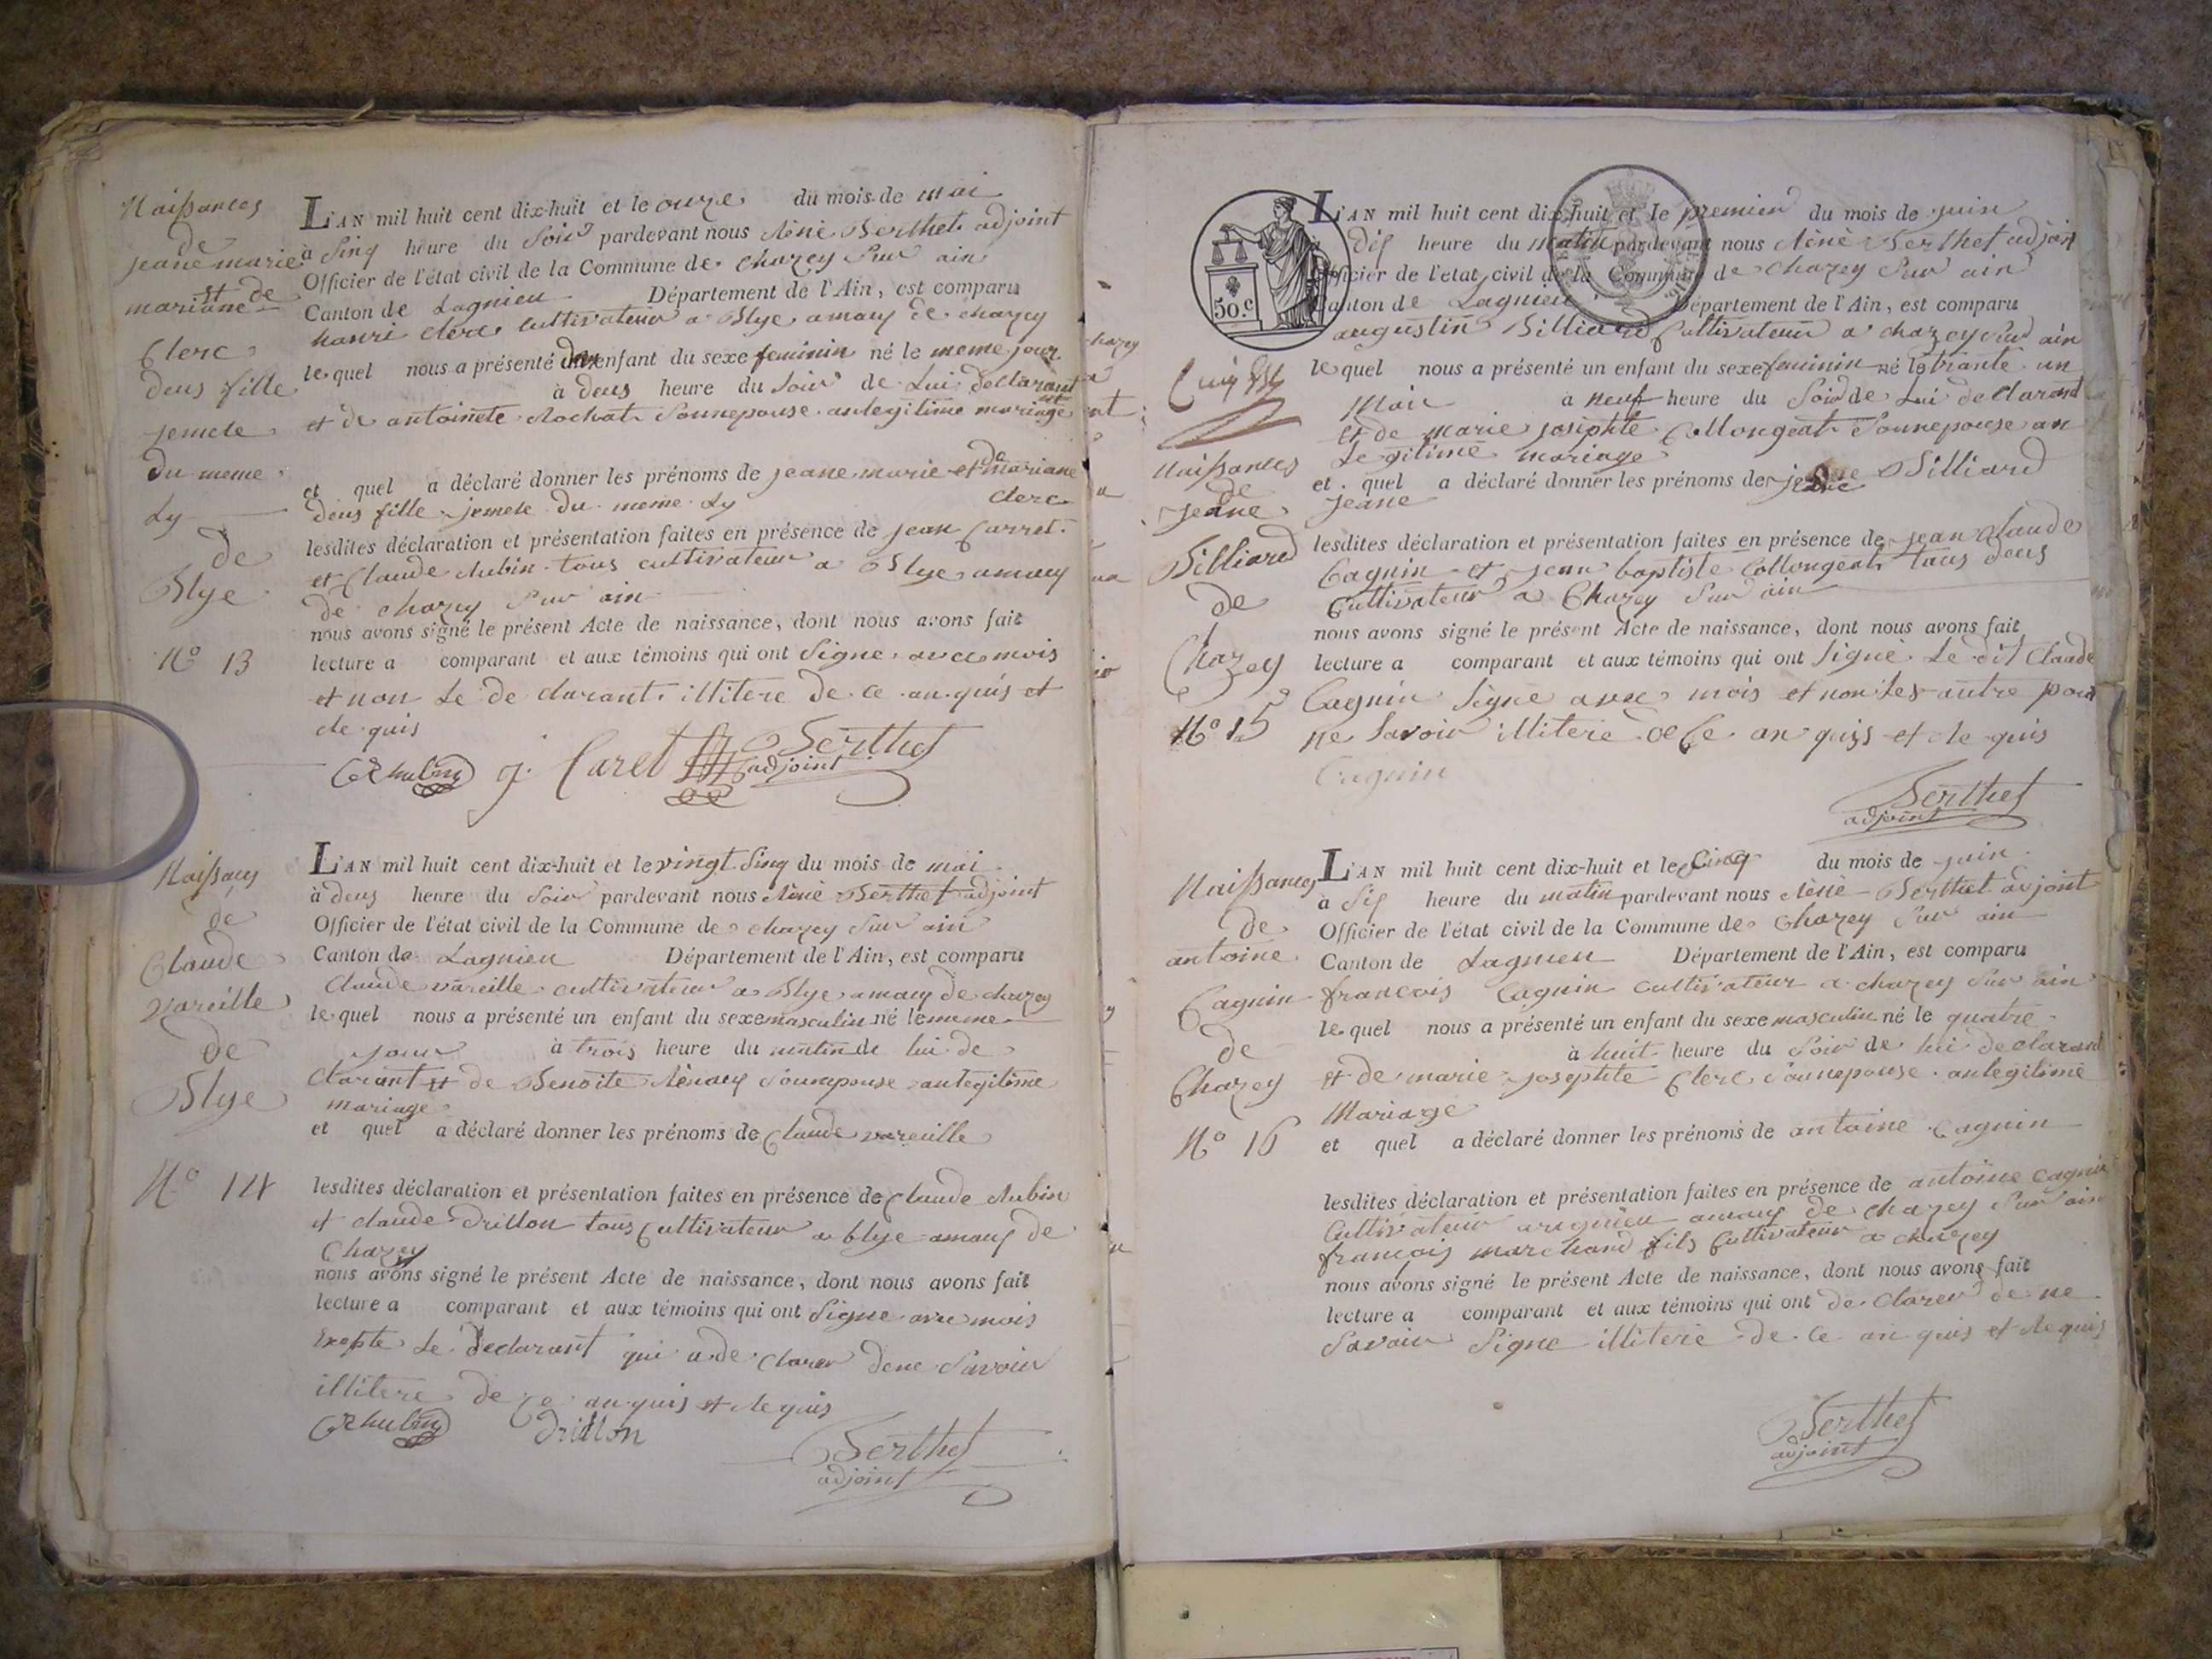 Naissances
de
jeane marie
et de
mariane
Clerc
deus fille
jemele
du meme
Ly
de
Blye
N° 13
L'AN mil huit cent dix-huit et le onze du mois de mai
à Sinq heure du Soir pardevant nous Réné Berthet adjoint
Officier de l'état civil de la Commune de chazey Sur ain
Canton de Lagnieu Département de l'Ain, est comparu
hanri clerc cultivateur a Blye amaux de chazey
lequel nous a présenté enfant du sexe feminin né le meme jour
à deus heure du Soir de Lui declarant
et de antoinete Rochat Sounepouse anlegitime mariage
et quel a déclaré donner les prénoms de jeane marie et de mariane
deus fille jemele du meme Ly clerc
lesdites déclaration et présentation faites en présence de jean Carret
et Claude Aubin tous cultivateur a Blye amaux
de chazey Sur ain
nous avons signé le présent Acte de naissance, dont nous avons fait
lecture a comparant et aux témoins qui ont Signe avec mois
et non Le de clarant illitere de ce an quis et
de quis
j. Caret Berthet
adjoint
Naissances
de
Claude
vareille
de
Blye
N° 14
L'AN mil huit cent dix-huit et le vingt Sinq du mois de mai
à deus heure du Soir pardevant nous Réné Berthet adjoint
Officier de l'état civil de la Commune de chazey Sur ain
Canton de Lagnieu Département de l'Ain, est comparu
Claude vareille cultivateur a Blye amaux de chazey
lequel nous a présenté un enfant du sexe masculin né le meme
jour à trois heure du matin de lui de
clarant et de Benoite Sounepouse anlegitime
mariage
et quel a déclaré donner les prénoms de Claude vareille
lesdites déclaration et présentation faites en présence de Claude Aubin
et claude Drillon tous Cultivateur a blye amaux de
Chazey
nous avons signé le présent Acte de naissance, dont nous avons fait
lecture a comparant et aux témoins qui ont Signe avec mois
Exepte Le Declarant qui a de clarer dene Savoir
illitere de ce an quis et de quis
Drillon
Berthet
adjoint
50.c
Naissances
de
Jeane
Billiard
de
Chazey
N° 15
L'AN mil huit cent dix-huit et le premier du mois de juin
à Dix heure du matin pardevant nous Réné Berthet adjoin
Officier de l'état civil de la Commune de Chazey Sur ain
Canton de Lagnieu Département de l'Ain, est comparu
augustin Billiard Cultivateur a chazey Sur ain
lequel nous a présenté un enfant du sexe feminin né le trante un
Mai à neuf heure du Soir de Lui declarant
et de marie josephte Collongeat Sounepouse an
Legitime mariage
et quel a déclaré donner les prénoms de Billiard
Jeane
lesdites déclaration et présentation faites en présence de jean Claude
Cagnin et jean baptiste Collongeat tous deus
Cultivateur a Chazey Sur ain
nous avons signé le présent Acte de naissance, dont nous avons fait
lecture a comparant et aux témoins qui ont Signe Le dit Claude
Cagnin Signe avec mois et non les autre pour
ne Savoir illitere de Ce an quis et de quis
Cagnin
Berthet
adjoint
Naissances
de
antoine
Cagnin
de
Chazey
N° 16
L'AN mil huit cent dix-huit et le Cinq du mois de juin
à Six heure du matin pardevant nous Réné Berthet adjoint
Officier de l'état civil de la Commune de Chazey Sur ain
Canton de Lagnieu Département de l'Ain, est comparu
francois Cagnin cultivateur a chazey Sur ain
lequel nous a présenté un enfant du sexe masculin né le quatre
à huit heure du Soir de lui declarant
et de marie josephte Clerc Sounepouse anlegitime
Mariage
et quel a déclaré donner les prénoms de antoine Cagnin
lesdites déclaration et présentation faites en présence de antoine Cagnin
Cultivateur amaux de chazey Sur ain
françois marchand fils Cultivateur a chazey
nous avons signé le présent Acte de naissance, dont nous avons fait
lecture a comparant et aux témoins qui ont de Clarer de ne
Savoir Signe illitere de ce an quis et de quis
Berthet
adjoint